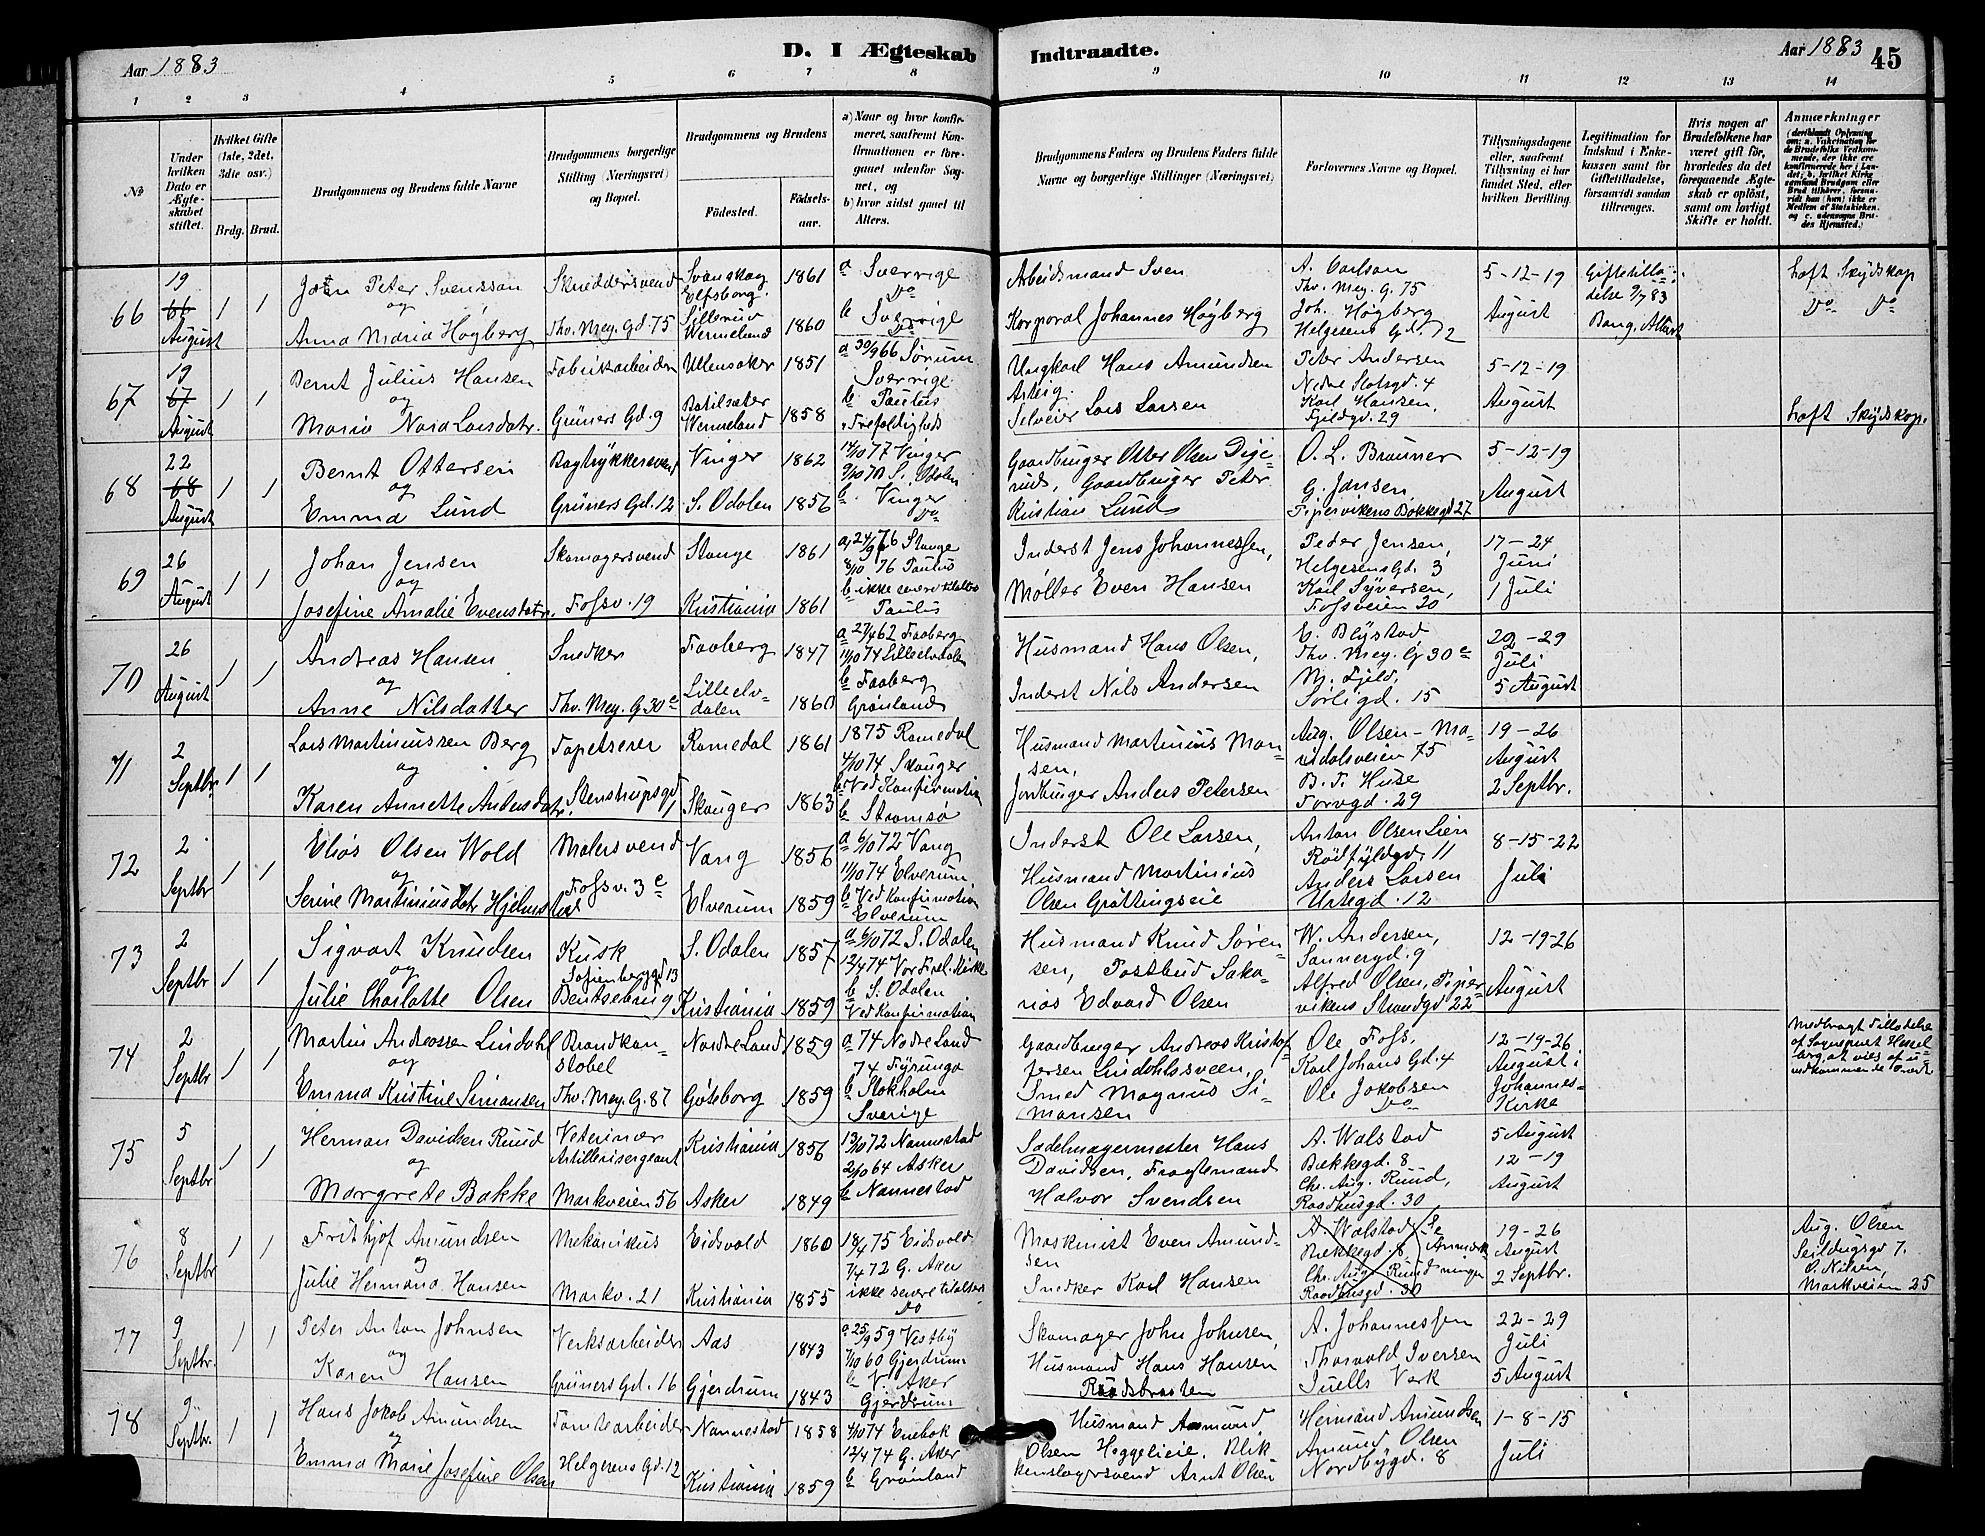 Aar 1883
D. I Ægteskab Indtraadte.
Aar 1883
45
1 2 3 4 5 6 7 8 9 10 11 12 13 14
No
Under hvilken Dato er Ægteskabet stiftet.
Hvilket Gifte (1ste, 2det, 3die osv.)
Brdg. Brud.
Brudgommens og Brudens fulde Navne
Brudgommens borgerlige Stilling (Næringsvei) og Bopæl.
Brudgommens og Brudens
Fødested.
Fødselsaar.
a) Naar og hvor konfirmeret, saafremt Konfirmationen er foregaaet udenfor Sognet, og
b) hvor sidst gaaet til Alters.
Brudgommens Faders og Brudens Faders fulde Navne og borgerlige Stillinger (Næringsvei)
Forlovernes Navne og Bopæl.
Tillysningsdagene eller, saafremt Tillysning ei har fundet Sted, efter hvilken Bevilling.
Legitimation for Indskud i Enkekassen samt for Giftetilladelse, forsaavidt saadan tiltrænges.
Hvis nogen af Brudefolkene har været gift før, hvorledes da det foregaaende Ægteskab er opløst, samt om lovligt Skifte er holdt.
Anmærkninger
66
19 66 August
1 1
John Peter Svensson
og
Anna Maria Høgberg
Skreddersvend
Thv. Mey. Gd 75
Svanskog Elfsborg
Sillerud Wermeland
1861
1860
a Sverrige
Do
b Sverrige
Do
Arbeidsmand Sven
Korporal Johannes Høgberg
A. Carlson
Thv. Mey. G. 75
Joh. Høgberg
Helgesens Gd. 72
5-12-19
August
Giftetilladelse 9/7 83
Bang, Attest
haft Skydskop
Do Do
67
19 67 August
1 1
Bernt Julius Hansen
og
Maria Larsdatr.
Fabrikarbeider
Grüners Gd. 9
Ullensaker
Wermeland
1851
1858
a 30/9 66 Sørum
Sverrige
b Paulus
Trefoldigheds
Ungkarl Hans Amundsen
Selveier Lars Larsen
Peter Andersen
Nedre Slotsgd. 4
Karl Hansen,
Fjeldgd. 29
5-12-19
August
haft Skydskop.
68
22 68 August
1 1
Bernt Ottersen
og
Emma Lund
Bogtrykkersvend
Grüners Gd. 12
Vinger
S. Odalen
1862
1856
14/10 77 Vinger
S. Odalen
b. Vinger
Do
Gaardbruger Otter Olsen
Gaardbruger Peter
Kristian Lund
O. L. Brauner
G. Jansen
Pipervikens Bakkegd 27
5-12-19
August
69
26 August
1 1
Johan Jensen
og
Josefine Amalie Evensdatr.
Skomagersvend
Fossv. 19
Stange
Kristiania
1861
1861
a, 24/9 76 Stange
8/10 76 Paulus
b ikke senere tilalters
Paulus
Inderst Jens Johannessen,
Møller Even Hansen
Peder Jensen,
Helgesens Gd. 3
Karl Syversen,
Fossveien 20
17-24
Juni
1 Juli
70
26 August
1 1
Andreas Hansen
og
Anne Nilsdatter
Snedker
Thv. Mey. G 30 c
Faaberg
Lilleelvdalen
1847
1860
a 27/4 62 Faaberg
11/10 74 Lilleelvdalen
b Faaberg
Grønland
Husmand Hans Olsen,
Inderst Nils Andersen
E. Blystad
Thv. Mey. G 30 c
M. Fjeld,
Sørligd. 15
22-29
Juli
5 August
71
2 Septbr.
1 1
Lars Martiniussen Berg
og
Karen Annette Andersdatr.
Tapetserer
Stenstrupsgd
Romedal
Skouger
1861
1863
1875 Romedal
4/10 74 Skouger
b Ved Konfirmation
b Strømsø
Husmand Martinius Monsen,
Jordbruger Anders Petersen
Aug. Olsen - Maridalsveien 75
B. T. Huse
Torvgd. 29
19-26
August
2 Septbr.
72
2 Septbr
1 1
Elias Olsen Wold
og
Serine Martiniusdatr Hjelmstad
Malersvend
Fossv. 3 c
Vang
Elverum
1856
1859
a 6/10 72 Vang
11/10 74 Elverum
b Ved Konfirmation
Elverum
Inderst Ole Larsen,
Husmand Martinius
Olsen Grøttingseie
Anton Olsen Lien
Rødfyldgd. 11
Anders Larsen
Urtegd. 12
8-15-22
Juli
73
2 Septbr
1 1
Sigvart Knudsen
og
Julie Charlotte Olsen
Kusk
Sofienberggd 13
Bentsebrug
S. Odalen
Kristiania
1857
1859
a 6/10 72 S. Odalen
12/4 74 Vor Frel. Kirke
b S. Odalen
Ved Konfirmation
Husmand Knud Sørensen, Postbud Sakarias Edvard Olsen
W. Andersen,
Sannergd. 9
Alfred Olsen, Pipervikens Strandgd 22
12-19-26
August
74
2 Septbr
1 1
Martin Andreassen Lindahl
og
Emma Kristine Simonsen
Brandkonstabel
Thv. Mey. G. 87
Nordre Land
Gøteborg
1859
1859
a 74 Nordre Land
74 Fyrunga
b Stokholm
Sverige
Gaardbruger Andreas Kristofersen Lindahlsveen,
Smed Magnus Simonsen
Ole Foss,
Karl Johans Gd. 4
Ole Jakobsen
Do
12-19-26
August i
Johannes-
Kirke
Medbragt Tilladelse
af Sognepræst Hesselberg, at vies af uvedkommende Præst
75
5 Septbr
1 1
Herman Davidsen Ruud
og
Margrete Bakke
Veterinær
Artillerisergeant
Markveien 56
Kristiania
Asker
1856
1849
13/10 72 Nannestad
2/10 64 Asker
b Nannestad
Sadelmagermester Hans
Davidsen, Fragtemand
Halvor Svendsen
A. Walstad
Bækkegd. 8
Chr. Aug. Ruud,
Raadhusgd. 30
5 August
12-19
August
76
8 Septbr
1 1
Fridthjof Amundsen
og
Julie Hermana Hansen
Mekanikus
Markv. 21
Eidsvold
Kristiania
1860
1855
18/4 75 Eidsvold
7/4 72 G. Aker
ikke senere tilalters
Do
Maskinist Even Amundsen
Snedker Karl Hansen
A. Walstad
Bækkegd. 8
Chr. Aug. Ruud
Raadhusgd. 30
Se Anmærkninger
19-26
August
2 Septbr.
Aug. Olsen
Seildugsgd 7.
O. Nilsen,
Markveien 25
77
9 Septbr.
1 1
Peter Anton Johnsen
og
Karen Hansen
Verksarbeider
Grüners Gd. 16
Aas
Gjerdrum
1843
1843
a 25/9 59 Vestby
7/10 60 Gjerdrum
b V. Aker
Gjerdrum
Skomager John Johnsen,
Husmand Hans Hansen
Raadsbraaten
A. Johannessen
Thorvald Iversen
Juells Verk
22-29
Juli
5 August
78
9 Septbr.
1 1
Hans Jakob Amundsen
og
Emma Marie Josefine Olsen
Tomtearbeider
Helgesens Gd. 12
Nannestad
Kristiania
1858
1859
4/10 74 Enebak
12/4 74 G. Aker
b Grønland
Husmand Amund
Olsen Heggelieie. Blikkenslagersvend Arnt Olsen
Herman Amundsen
Amund Olsen
Nordbygd. 8
1-8-15
Juli